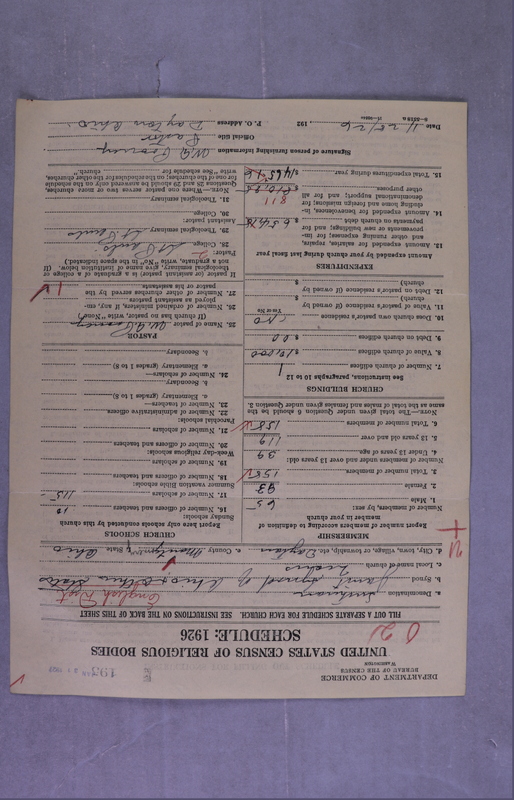 DEPARTMENT OF COMMERCE
BUREAU OF THE CENSUS
WASHINGTON
UNITED STATES CENSUS OF RELIGIOUS BODIES
SCHEDULE: 1926
FILL OUT A SEPARATE SCHEDULE FOR EACH CHURCH. SEE INSTRUCTIONS ON THE BACK OF THIS SHEET
a. Denomination Lutheran English Dist
b. Synod Joint Synod of Ohio & Other States
c. Local name of church
d. City, town, village, or township, etc. Dayton e. County Montgomery f. State Ohio
MEMBERSHIP
Report number of members according to definition of member in your church
Number of members, by sex:
1. Male 65
2. Female 93
3. Total number of members 158
Number of members under and over 13 years old:
4. Under 13 years of age 39
5. 13 years old and over 119
6. Total number of members 158
NOTE.—The total given under Question 6 should be the same as the total of males and females given under Question 3.
CHURCH BUILDINGS
See instructions, paragraphs 10 to 12
7. Number of church edifices 1
8. Value of church edifices $10,000
9. Debt on church edifices $ 00
10. Does church own pastor's residence No
Yes or No
11. Value of pastor's residence (if owned by church) $
12. Debt on pastor's residence (if owned by church) $
EXPENDITURES
Amount expended by your church during last fiscal year
13. Amount expended for salaries, repairs, and other running expenses; for improvements or new building; and for payments on church debt
14. Amount expended for benevolences, including home and foreign missions; for denominational support; and for all other purposes 811
15. Total expenditures during year
CHURCH SCHOOLS
Report here only schools conducted by this church
Sunday schools:
16. Number of officers and teachers 10
17. Number of scholars 115
Summer vacation Bible schools:
18. Number of officers and teachers
19. Number of scholars
Week-day religious schools:
20. Number of officers and teachers
21. Number of scholars
Parochial schools:
22. Number of administrative officers
23. Number of teachers—
a. Elementary (grades 1 to 8)
b. Secondary
24. Number of scholars—
a. Elementary (grades 1 to 8)
b. Secondary
PASTOR
25. Name of pastor
(If church has no pastor, write "None")
26. Number of ordained ministers, if any, employed as assistant pastors
27. Number of other churches served by the pastor or his assistants 1
If pastor (or assistant pastor) is a graduate of a college or theological seminary, give name of institution below. (If not a graduate, write "No" in the space indicated.)
Pastor:
28. College
29. Theological seminary
Assistant pastor:
30. College
31. Theological seminary
NOTE.—Where one pastor serves two or more churches, Questions 28 and 29 should be answered only on the schedule for one of the churches; on the schedule for the other churches, write "See schedule for church."
Signature of person furnishing information
Official title Pastor
Date 192 P. O. Address Dayton Ohio